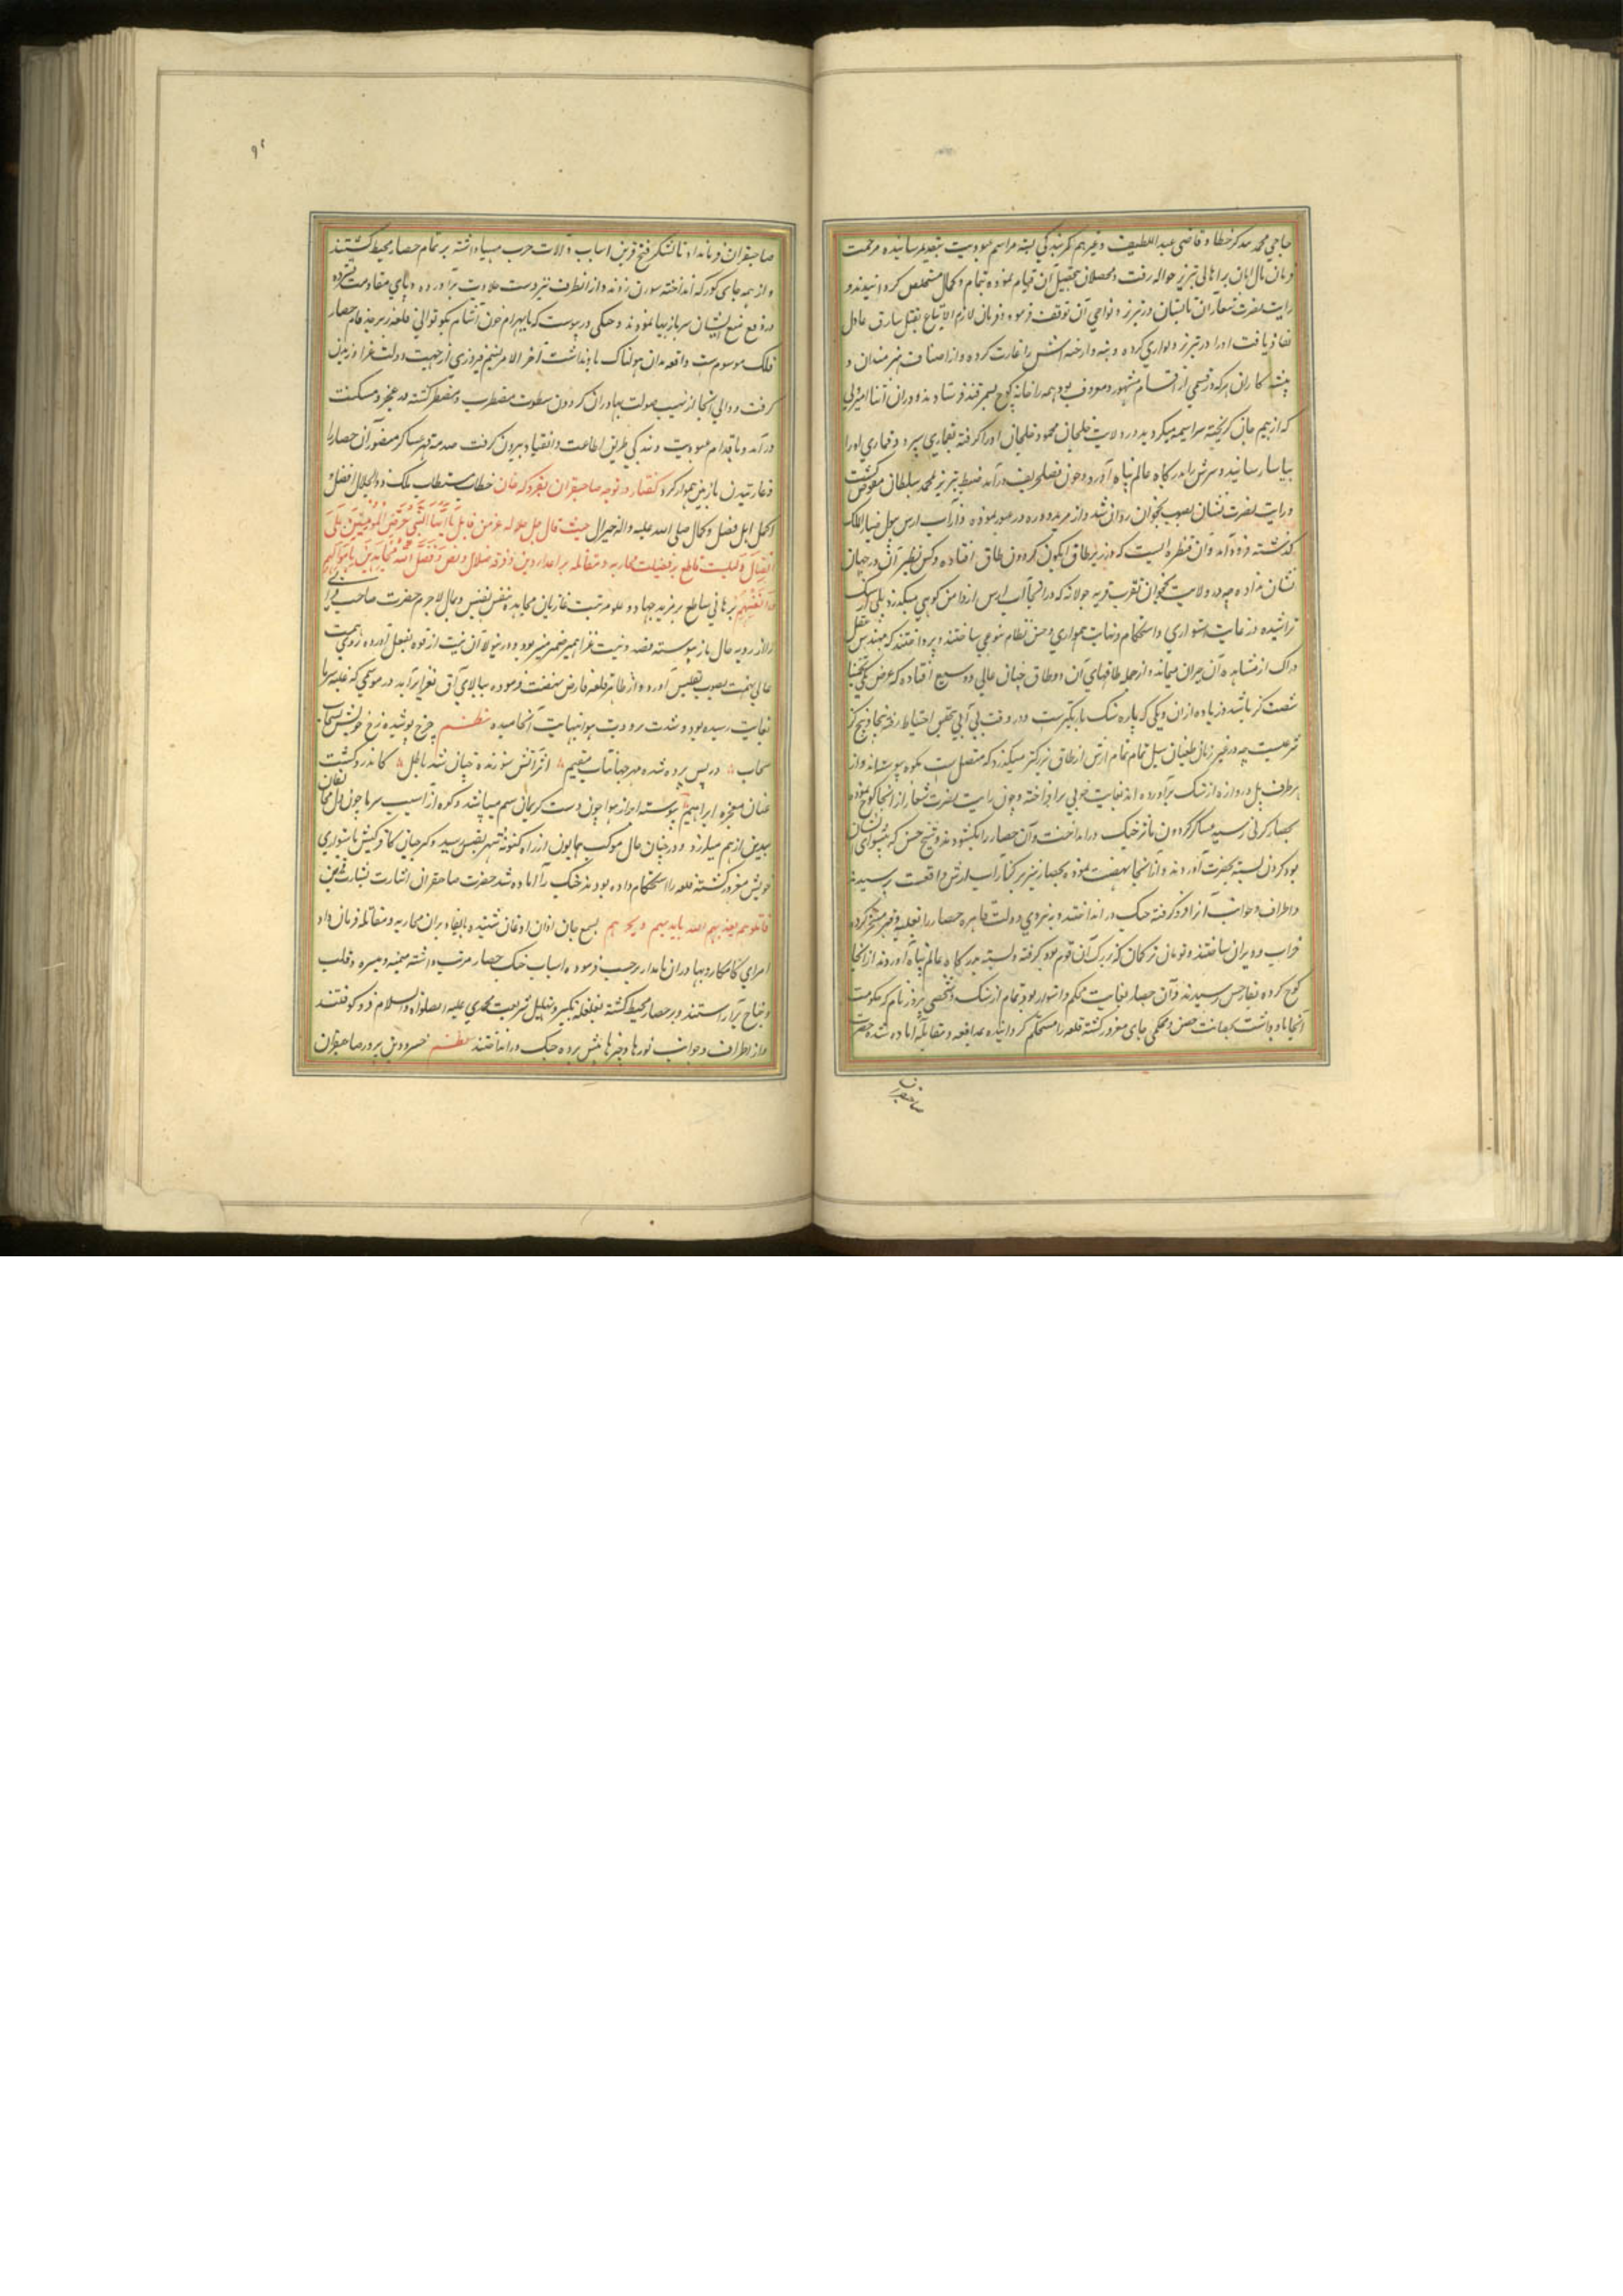 حاجی محمد بندگیر خطاط و قاضی عبداللطیف و غیرهم کمر بندگی بسته مراسم عبودیت بتقدیم رسانیده مرحمت
فرمان مال امان بر اهالی تبریز حواله رفت و محصلان بتحصیل آن قیام نموده بتمام و کمال مستخلص گردانیدند و
رایت نصرت شعار آن تابستان در تبریز و نواحی آن توقف فرمود و فرمان لازم الاتباع بقتل سارق عادل
نفاذ یافت او را در تبریز دیواری کرده و بنه و ارخته اش را غارت کرده و از اصناف هنرمندان و
پیشه کاران هر که در قسمی از اقسام مشهور و معروف بود همه را خانه کوچ بسمرقند فرستادند و در آن اثنا امیر ولی
که از بیم جان گریخته سراسیمه میگردید در ولایت خلخال محمود خلخالی او را گرفته بقماری سپرد و قماری او را
بیاسا رسانید و سرش بدرگاه عالم پناه آورد و چون فصل خریف درآمد ضبط تبریز بمحمد سلطان مفوض گشت
و رایت نصرت نشان بصوب نخجوان روان شد و از مرند و دره دز عبور نموده و از آب ارس بپول ضیاء الملک
گذشته فرود آمد و آن قنطره ایست که در زیر طاق نیلگون گردون طاق افتاده و کس نظیر آن در جهان
نشان نداده چه در ولایت نخجوان بقرب قریه جولاهه که در آنجا آب ارس از دامن کوهی میگذرد پلی از سنگ
تراشیده در غایت استواری و استحکام و نهایت همواری و حسن نظام بنوعی ساختند و پرداختند که مهندس عقل
دراک از مشاهده آن حیران میماند و از جمله طاقهای آن دو طاق چنان عالی و وسیع افتاده که عرض یکی تخمینا
شصت گز باشد و زیاده از آن و یکی که پاره تنک باریکترست و در وقت بی آبی بتحقیق احتیاط رفته پنجاه و پنج گز
شرعیست چه در غیر زمان طغیان سیل تمام تمام ارس از طاق بزرگتر میگذرد که متصل است بکوه پیوسته اند و از
هر طرف پل دروازه از سنگ برآورده اند بغایت خوبی برافراخته و چون رایت نصرت شعار از آنجا کوچ نموده
بحصار کرنی رسید عساکر گردون مآثر جنگ درانداخت و آن حصار را بگشودند و شیخ حسن که پیشوای ایشان
بود گردن بسته بحضرت آوردند و از آنجا نهضت نموده بحصار
و اطراف و جوانب آن را فرو گرفته جنگ در انداختند و به نیروی دولت قاهره حصار را بغلبه و قهر مسخر کرده
خراب و ویران ساختند و تومان ترکمان که بزرگ آن قوم بود گرفته و بسته بدرگاه عالم پناه آوردند از آنجا
کوچ کرده بقارص رسیدند و آن حصار بغایت محکم و استوار بود تمام از سنگ و شخصی فیروز نام که حکومت
آنجا باو داشت بحصانت حصن و محکمی جای مغرور گشته قلعه را مستحکم گردانیده بمدافعه و مقابله آماده شده حضرت
صاحبقران
۹۲
صاحبقران فرمان داد تا لشکر فتح قرین اسباب و آلات حرب مهیا داشته بر تمام حصار محیط گشتند
و از همه جای کورکه انداخته سورن زدند و از آنطرف نیز دست جلادت برآورده و پای مقاومت فشرده
در دفع و منع ایشان سربازیها نمودند و جنگی در پیوست که بهرام خون آشام بکوتوالی قلعه زبرجد فام حصار
فلک موسومست واقعه بدان هولناک یاد نداشت آخر الامر نسیم فیروزی از جهت دولت غرا وزیدن
گرفت و والی آنجا از نهیب صولت بهادران گردون سطوت مضطرب و مضطر گشته در عجز و مسکنت
درآمد و باقدام عبودیت و بندگی طریق اطاعت و انقیاد بیرون گرفت صدمه قهر عساکر منصور آن حصار را
در غارتیدن با زمین هموار کرد گفتار در توجه صاحبقران بغزو گرجستان خطاب مستطاب ملک ذوالجلال افضل
اکمل اهل فضل و کمال صلی الله علیه و آله خیر آل حیث قال جل جلاله عز من قائل یا ایها النبی حرض المؤمنین علی
القتال دلیلیست قاطع بر فضیلت محاربه و مقاتله بر اعداء دین و فرقه ضلال و نص فضل الله المجاهدین باموالهم
و انفسهم برهانی ساطع بر مزید جهاد و علو مرتبت غازیان مجاهد بنفس نفیس و مال لاجرم حضرت صاحب قرانی
را از روی حال باز پیوسته قصد و نیت غزا همیر ضمیر منیر بود و درینولا آن نیت از قوه بفعل آورده روی همت
عالی نهمت بصوب تفلیس آورد و از ظاهر قلعه قارص نهضت فرموده ببالای آق بغرا برآمد در موسمی که غلبه سرما
بغایت رسیده بود و شدت برودت هوا بنهایت انجامیده نظم چرخ پوشیده رخ خویش بسنجاب
سحاب در پس پرده شده مهر جهانتاب مقیم اثر آتش سوزنده چنان شد باطل کاندرو گشت
عیان معجزه ابراهیم پیوسته ابر از هوا چون دست کریمان سیم میپاشد و کوه از آسیب سرما چون دل
بیدین از هم میلرزد و در چنان حال موکب همایون از راه کتوتفلیس رسید و گرجیان کافر کیش باستواری
خویش مغرور گشته قلعه را استحکام داده بودند جنگ را آماده شد حضرت صاحبقران اشارت بشارت قرین
قاتلوهم یعذبهم الله بایدیکم و یخزهم بسمع جان اذان اذعان شنیده بایفاء بران محاربه و مقاتله فرمان داد
امرای کامکار و بهادران نامدار بر حسب فرموده اسباب جنگ حصار مرتب داشته میمنه و میسره و قلب
و جناح برآراستند و بر حصار محیط گشته بغلغله تکبیر و تهلیل شریعت محمدی علیه الصلواة والسلام فرو کوفتند
و از اطراف و جوانب تورها و چپرها پیش برده جنگ در انداختند نظم خسرو دین پرور صاحبقران